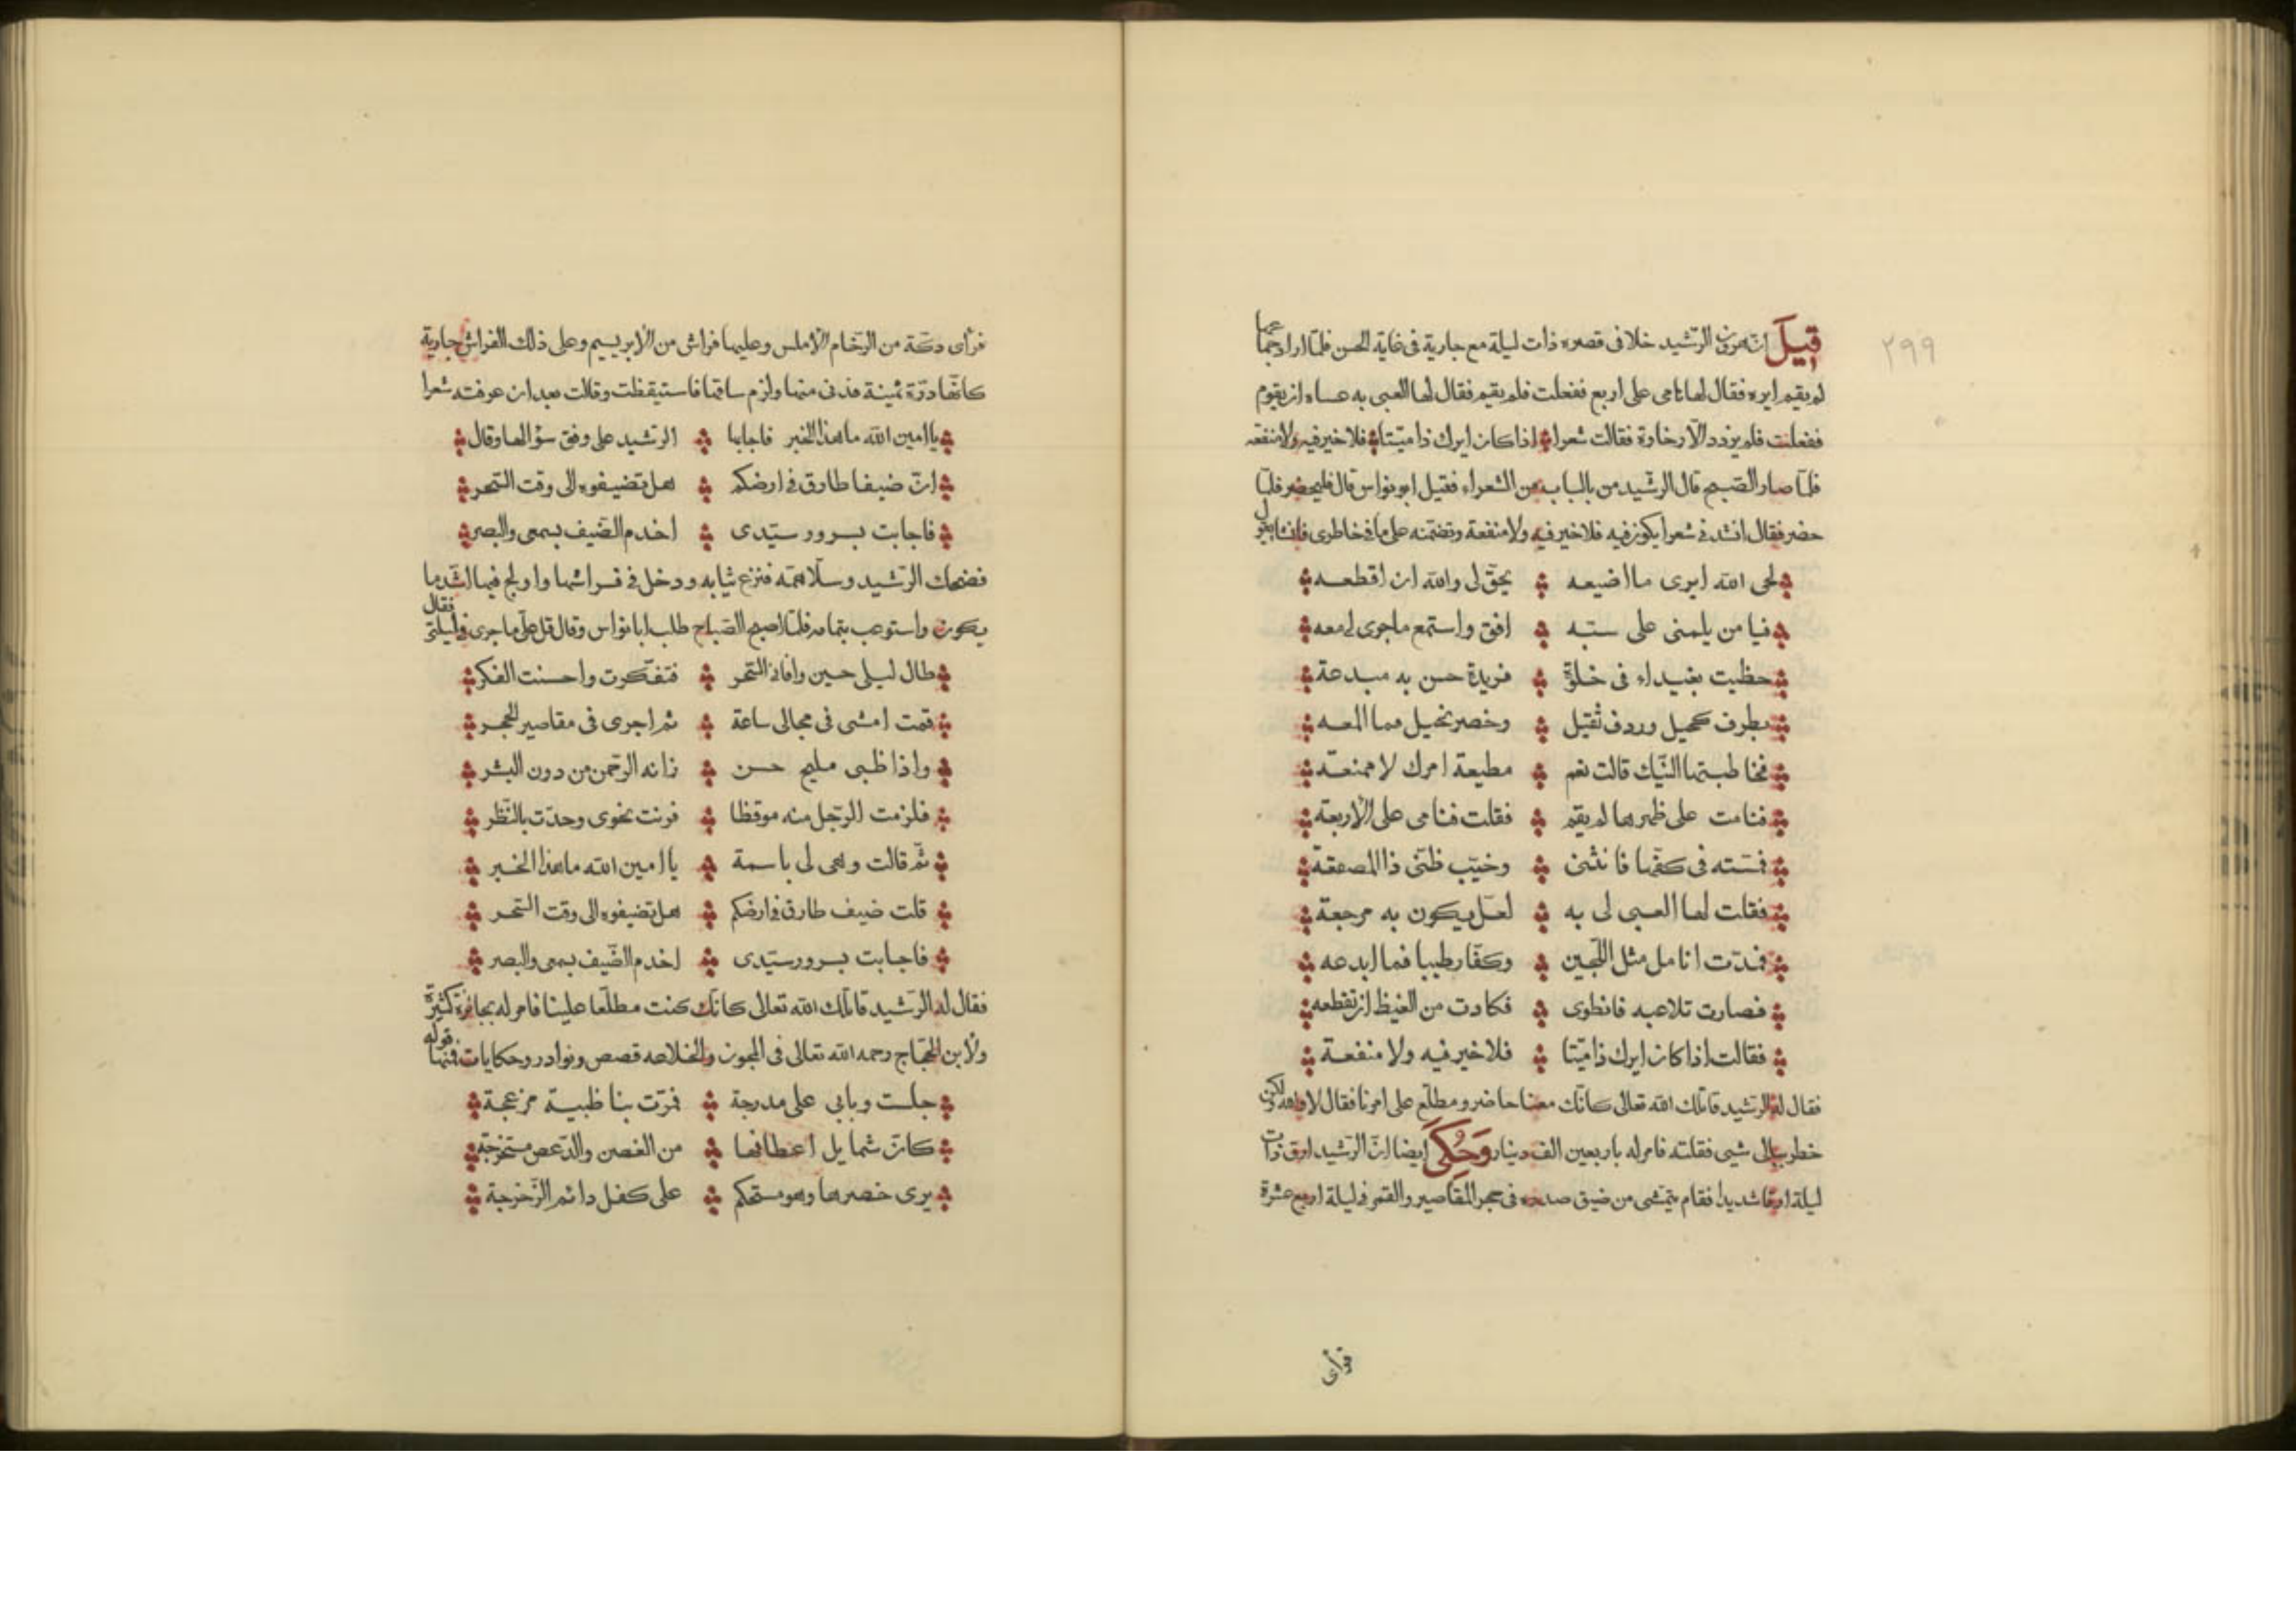 ٢٩٩
قيل ان هرون الرشيد خلا فى قصره ذات ليلة مع جارية فى غاية الحسن فلما اراد جماعها
لم يقم ايره فقال لها نامى على اربع ففعلت فلم يقم فقال لها العبى به عساه ان يقوم
ففعلت فلم يزدد الا رخاوة فقالت شعرا اذا كان ايرك ذا ميتا فلا خير فيه ولا منفعه
فلما صار الصبح قال الرشيد من بالباب من الشعراء فقيل ابو نواس قال فليحضر فلما
حضر فقال انشد فى شعرا يكون فيه فلا خير فيه ولا منفعة وتضمنه على ما فى خاطرى فانشا يقول
لحى الله ايرى ما اضيعه يحق لى والله ان اقطعه
فيا من يلمنى على سبه افق واستمع ما جرى لى معه
حظيت بغيداء فى خلوة فريدة حسن به مبدعة
بطرف كحيل وردف ثقيل وخصر نحيل فما المعه
فخاطبتها النيك قالت نعم مطيعة امرك لا ممنعة
فنامت على ظهرها لم يقم فقلت فنامى على الأربعة
فمسته فى كفها فانثنى وخيب ظنى ذا المصعقة
فقلت لها العبى لى به لعل يكون به مرجعة
فمدت انامل مثل اللجين وكفا رطيبا فما ابدعه
فصارت تلاعبه فانطوى فكادت من الغيظ ان تقطعه
فقالت اذا كان ايرك ذا ميتا فلا خير فيه ولا منفعة
فقال له الرشيد قاتلك الله تعالى كانك معنا حاضر ومطلع على امرنا فقال لا والله لكن
خطر ببالى شيى فقلته فامر له باربعين الف دينار وحكى ايضا ان الرشيد ارق ذات
ليلة ارقا شديدا فقام يتمشى من ضيق صدره فى حجر المقاصير والقمر فى ليلة اربع عشرة
فرأى
فرأى دكة من الرخام الأملس وعليها فراش من الأبريسم وعلى ذلك الفراش جارية
كانها درة ثمينة فدنى منها ولزم ساقها فاستيقظت وقالت بعد ان عرفته شعرا
يا امين الله ما هذا الخبر فاجابها الرشيد على وفق سؤالها وقال
ان ضيفا طارق فى ارضكم هل تضيفوه الى وقت السحر
فاجابت بسرور سيدى اخدم الضيف بسمعى والبصر
فضحك الرشيد وسلا همه فنزع ثيابه ودخل فى فراشها واولج فيها اشد ما
يكون واستوعب بتمامه فلما اصبح الصباح طلب ابا نواس وقال قل على ما جرى فى ليلتى فقال
طال ليلى حين وافانى السحر فتفكرت واحسنت الفكر
قمت امشى فى مجالى ساعة ثم اجرى فى مقاصير الحجر
واذا ظبى مليح حسن زانه الرحمن من دون البشر
فلزمت الرجل منه موقظا فرنت نحوى وحدت بالنظر
ثم قالت وهى لى باسمة يا امين الله ما هذا الخبر
قلت ضيف طارق فى ارضكم هل تضيفوه الى وقت السحر
فاجابت بسرور سيدى اخدم الضيف بسمعى والبصر
فقال له الرشيد قاتلك الله تعالى كانك كنت مطلعا علينا فامر له بجائزة كثيرة
ولأبن الحجاج رحمه الله تعالى فى المجون والخلاعه قصص ونوادر وحكايات فمنها قوله
جلست وبابى على مدرجة فمرت بنا ظبية مزعجة
كان شمايل اعطافها من الغصن والدعص مستخرجة
يرى خصرها وهو مستحكم على كفل دائم الرخرجة